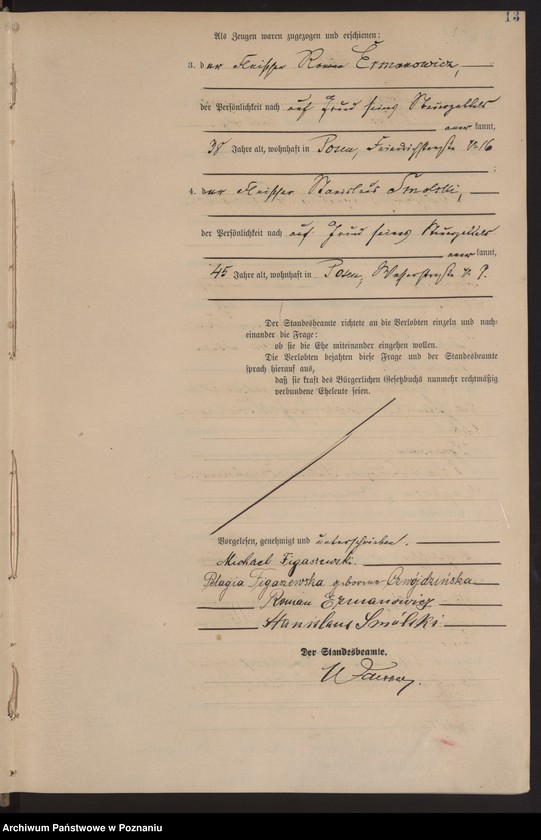 13
Als Zeugen waren zugezogen und erschienen:
3. der Fleischer Roman Ermanowicz,
der Persönlichkeit nach auf Grund seines Steuerzettels
anerkannt,
38 Jahre alt, wohnhaft in Posen, Friedrichstraße № 16
;
4. der Fleischer Stanislaus Smolski,
der Persönlichkeit nach auf Grund seines Steuerzettels
anerkannt,
45 Jahre alt, wohnhaft in Posen, Wasserstraße №
Der Standesbeamte richtete an die Verlobten einzeln und nach-
einander die Frage:
ob sie die Ehe miteinander eingehen wollen.
Die Verlobten bejahten diese Frage und der Standesbeamte
sprach hierauf aus,
daß sie kraft des Bürgerlichen Gesetzbuchs nunmehr rechtmäßig
verbundene Eheleute seien.
Vorgelesen, genehmigt und unterschrieben.
Michael Figaszewski.
Pelagia Figazewska geborene Czwójdzińska
Roman Ermanowicz
Stanislaus Smólski
Der Standesbeamte.
Archiwum Państwowe w Poznaniu